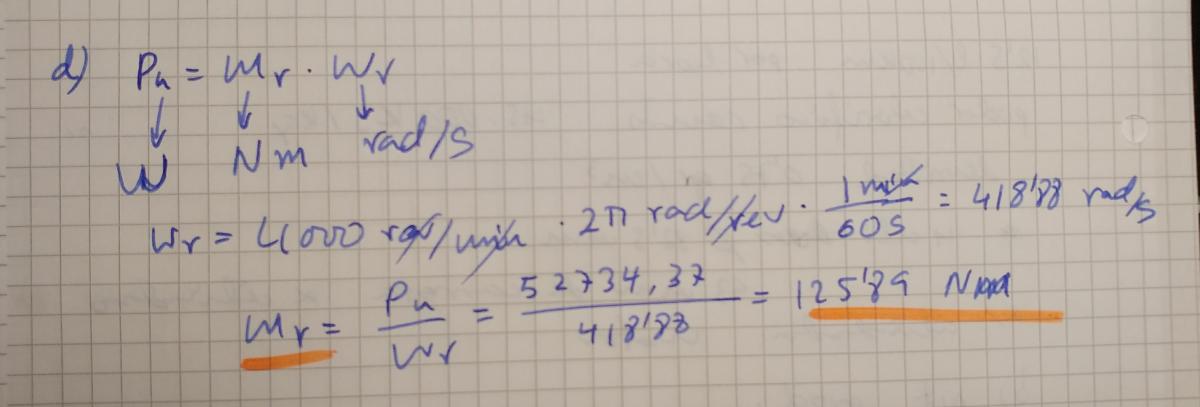 d) Pu = Mr · Wr
↓ ↓ ↓
W Nm rad/s
Wr = 4000 rev/min · 2π rad/rev · 1 min/60 s = 418'88 rad/s
Mr = Pu/Wr = 52734,37/418'88 = 125'89 Nm